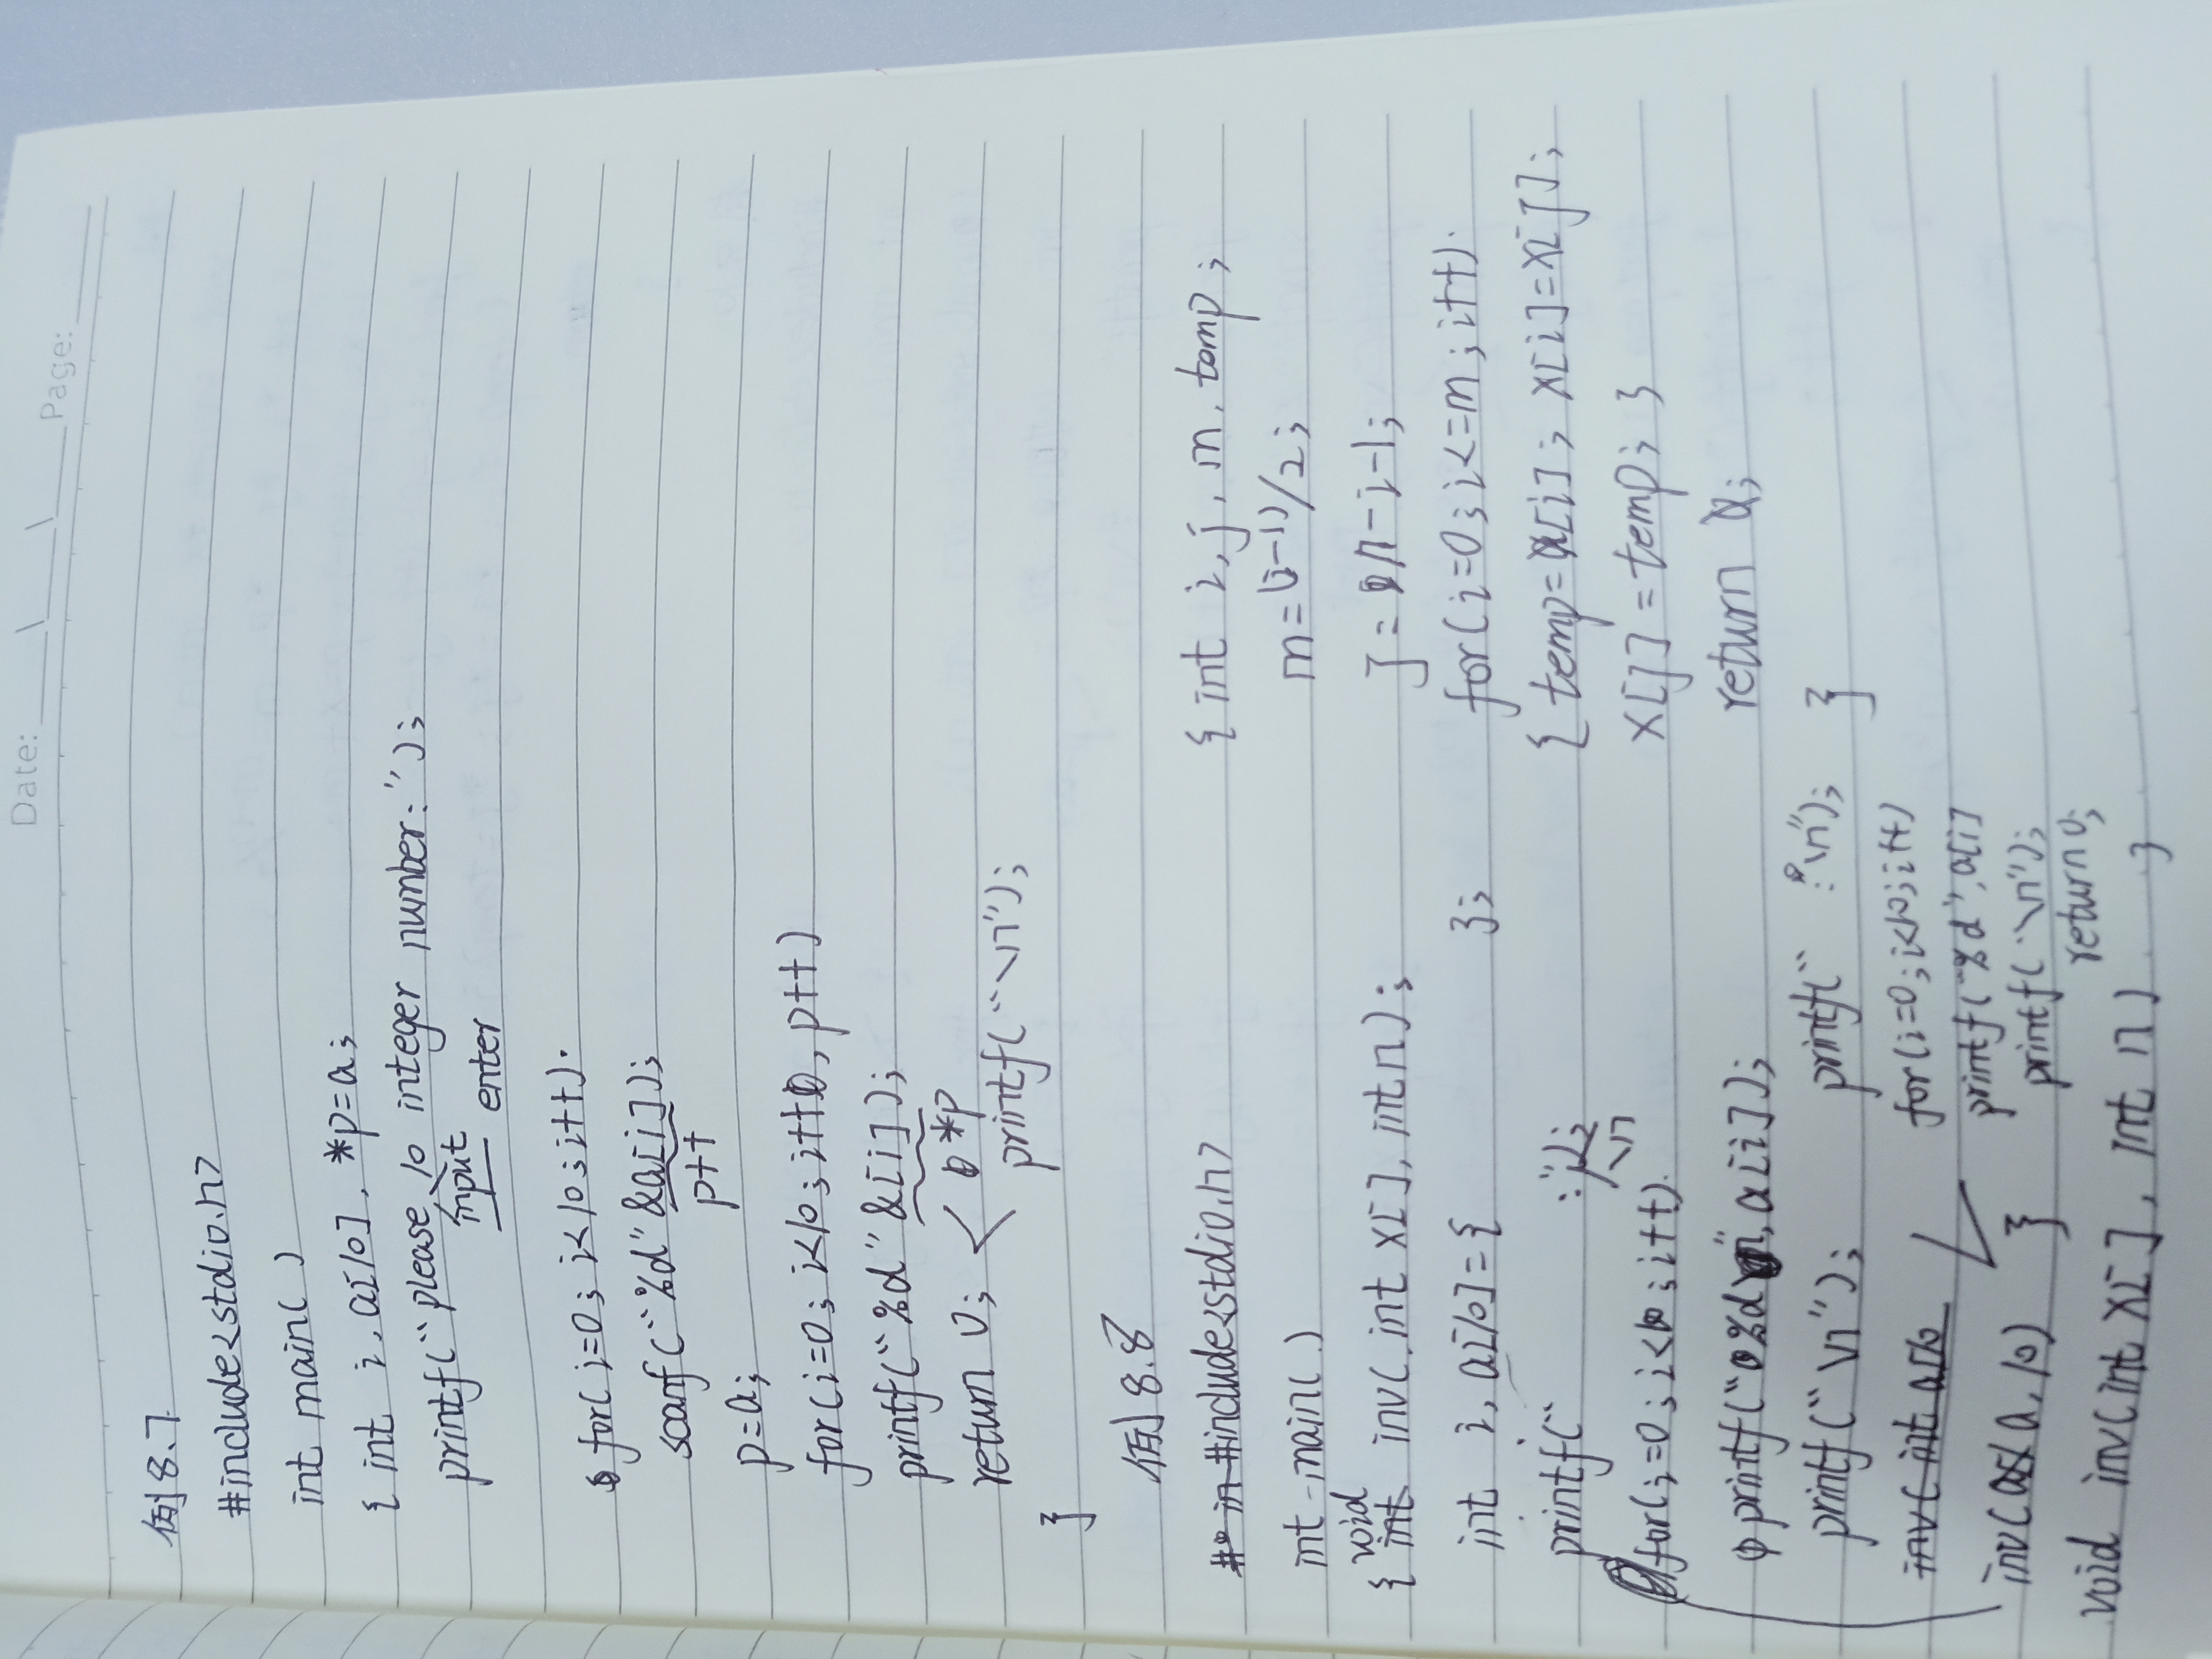 Date: Page:
例8.7
#include<stdio.h>
int main( )
{ int i, a[10], *p=a;
printf("please 10 integer number:");
input
enter
for(i=0; i<10; i++).
scanf("%d"&a[i]);
p++
p=a;
for(i=0; i<10; i++, p++)
printf("%d"&[i]);
*p
return 0;
printf("\n");
}
例8.8
#in #include<stdio.h>
int main( )
void
{ int inv(int x[], int n);
int i, a[10]={
};
printf("
:");
\n
for(i=0; i<10; i++).
printf("%d", a[i]);
printf("\n");
inv(int a[10
inv(a, 10)
printf("
:\n");
for(i=0; i<10; i++)
printf("%d", a[i]
printf("\n");
return 0;
}
void inv(int x[], int n)
}
{ int i, j, m, temp;
m=(i-1)/2;
j=n-i-1;
for(i=0; i<=m; i++).
{ temp=x[i]; x[i]=x[j];
x[j]=temp; }
return
}